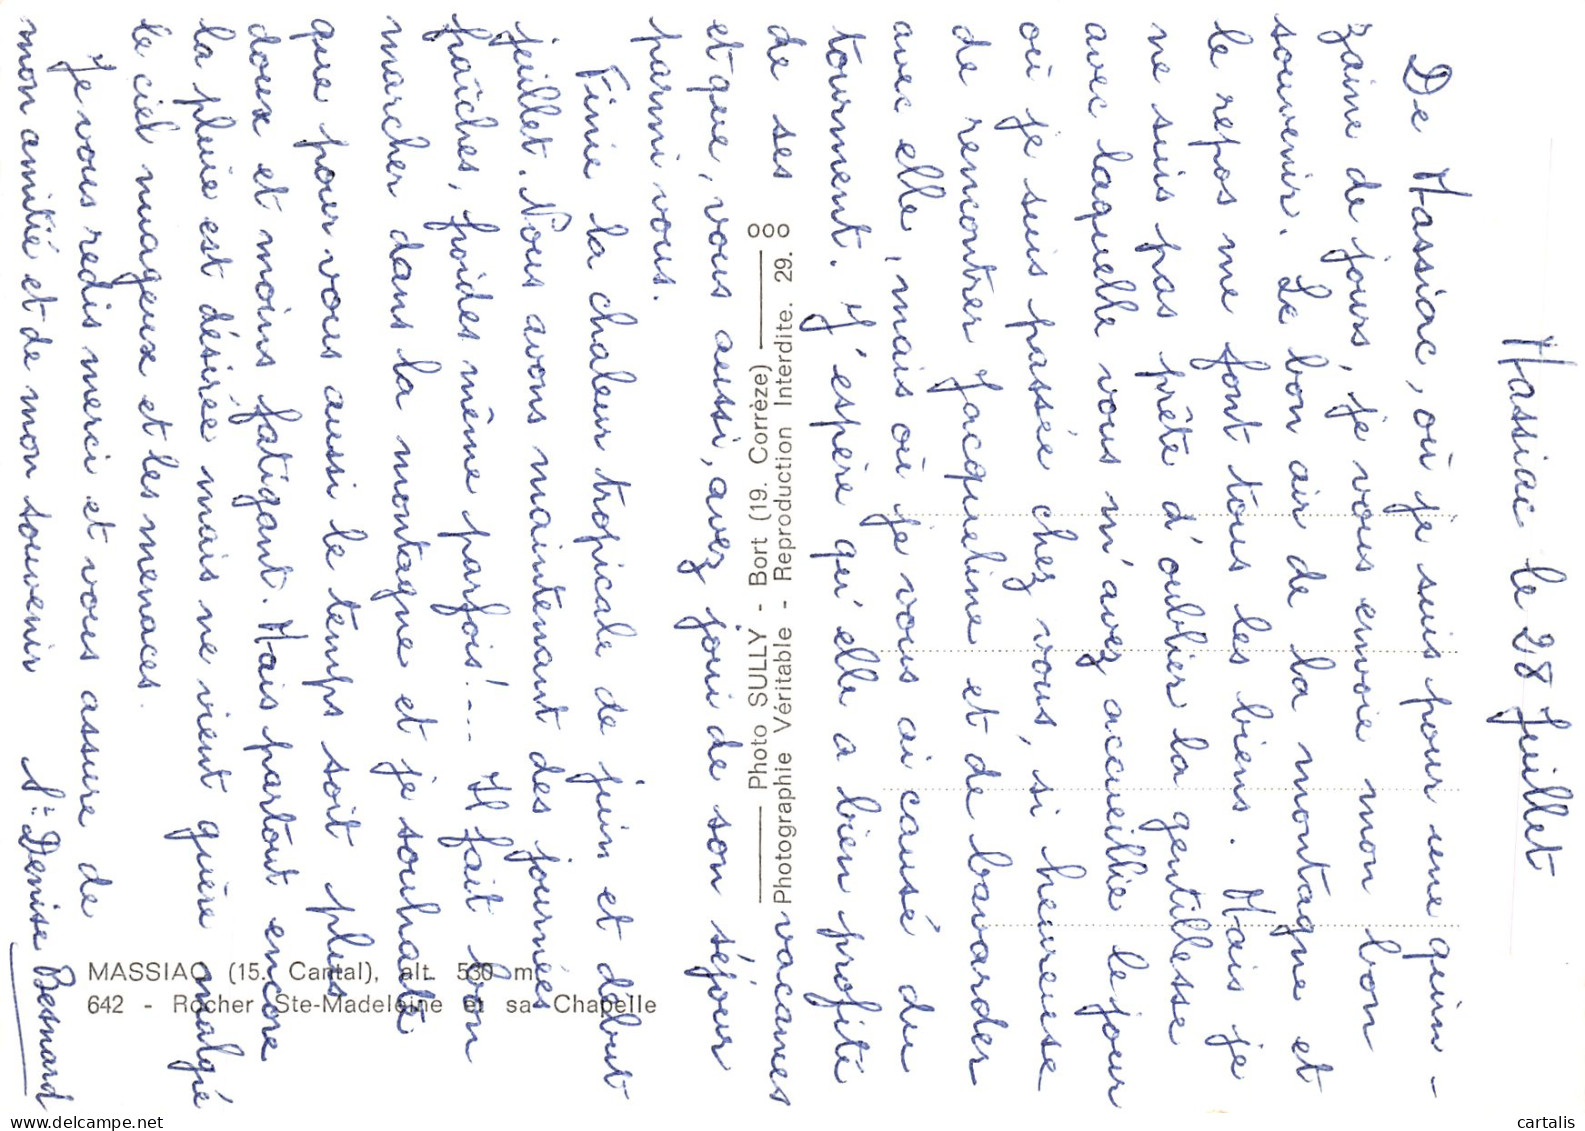 Massiac le 28 Juillet
De Massiac, où je suis pour une quin-
zaine de jours, je vous envoie mon bon
souvenir. Le bon air de la montagne et
le repos me font tous les biens. Mais je
ne suis pas prête d'oublier la gentillesse
avec laquelle vous m'avez accueillie le jour
où je suis passée chez vous, si heureuse
de rencontrer Jacqueline et de bavarder
avec elle, mais où je vous ai causé du
tourment. J'espère qu'elle a bien profité
de ses vacances
et que, vous aussi, avez joui de son séjour
parmi vous.
Finie la chaleur tropicale de juin et début
juillet. Nous avons maintenant des journées
fraîches, froides même parfois!... Il fait bon
marcher dans la montagne et je souhaite
que pour vous aussi le temps soit plus
doux et moins fatigant. Mais partout encore
la pluie est désirée mais ne vient guère malgré
le ciel nuageux et les menaces.
Je vous redis merci et vous assure de
mon amitié et de mon souvenir
Sr Denise Besnard
Photo SULLY - Bort (19. Corrèze)
Photographie Véritable - Reproduction Interdite. 29. 8
MASSIAC (15. Cantal), alt. 530 m
642 - Rocher Ste-Madeleine et sa Chapelle
delcampe.net
cartalis